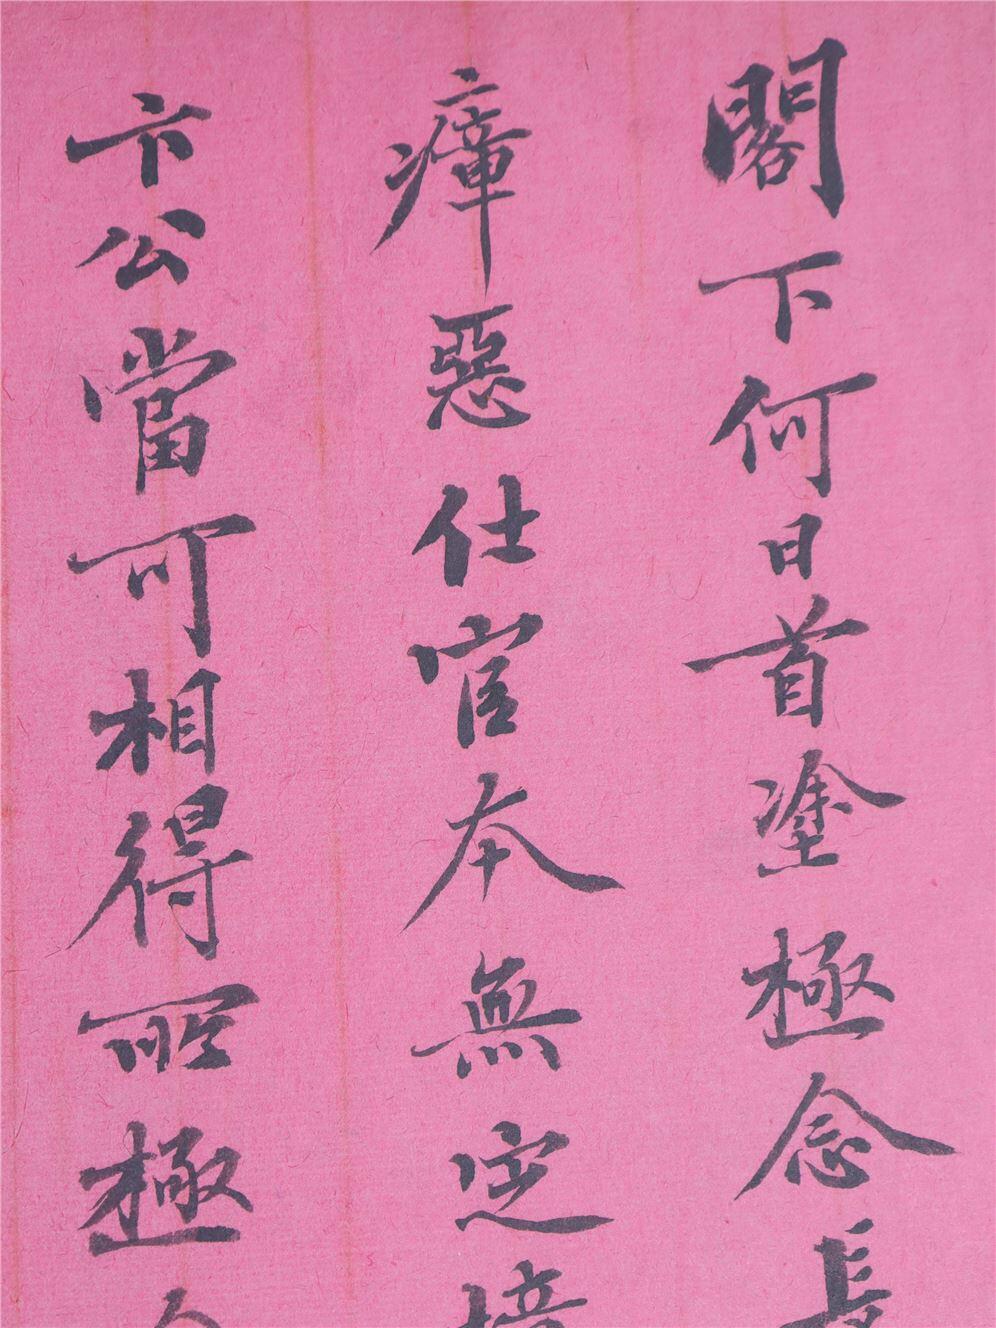 閣下何日首塗極念長
瘴惡仕宦本無定境
卞公當可相得所極